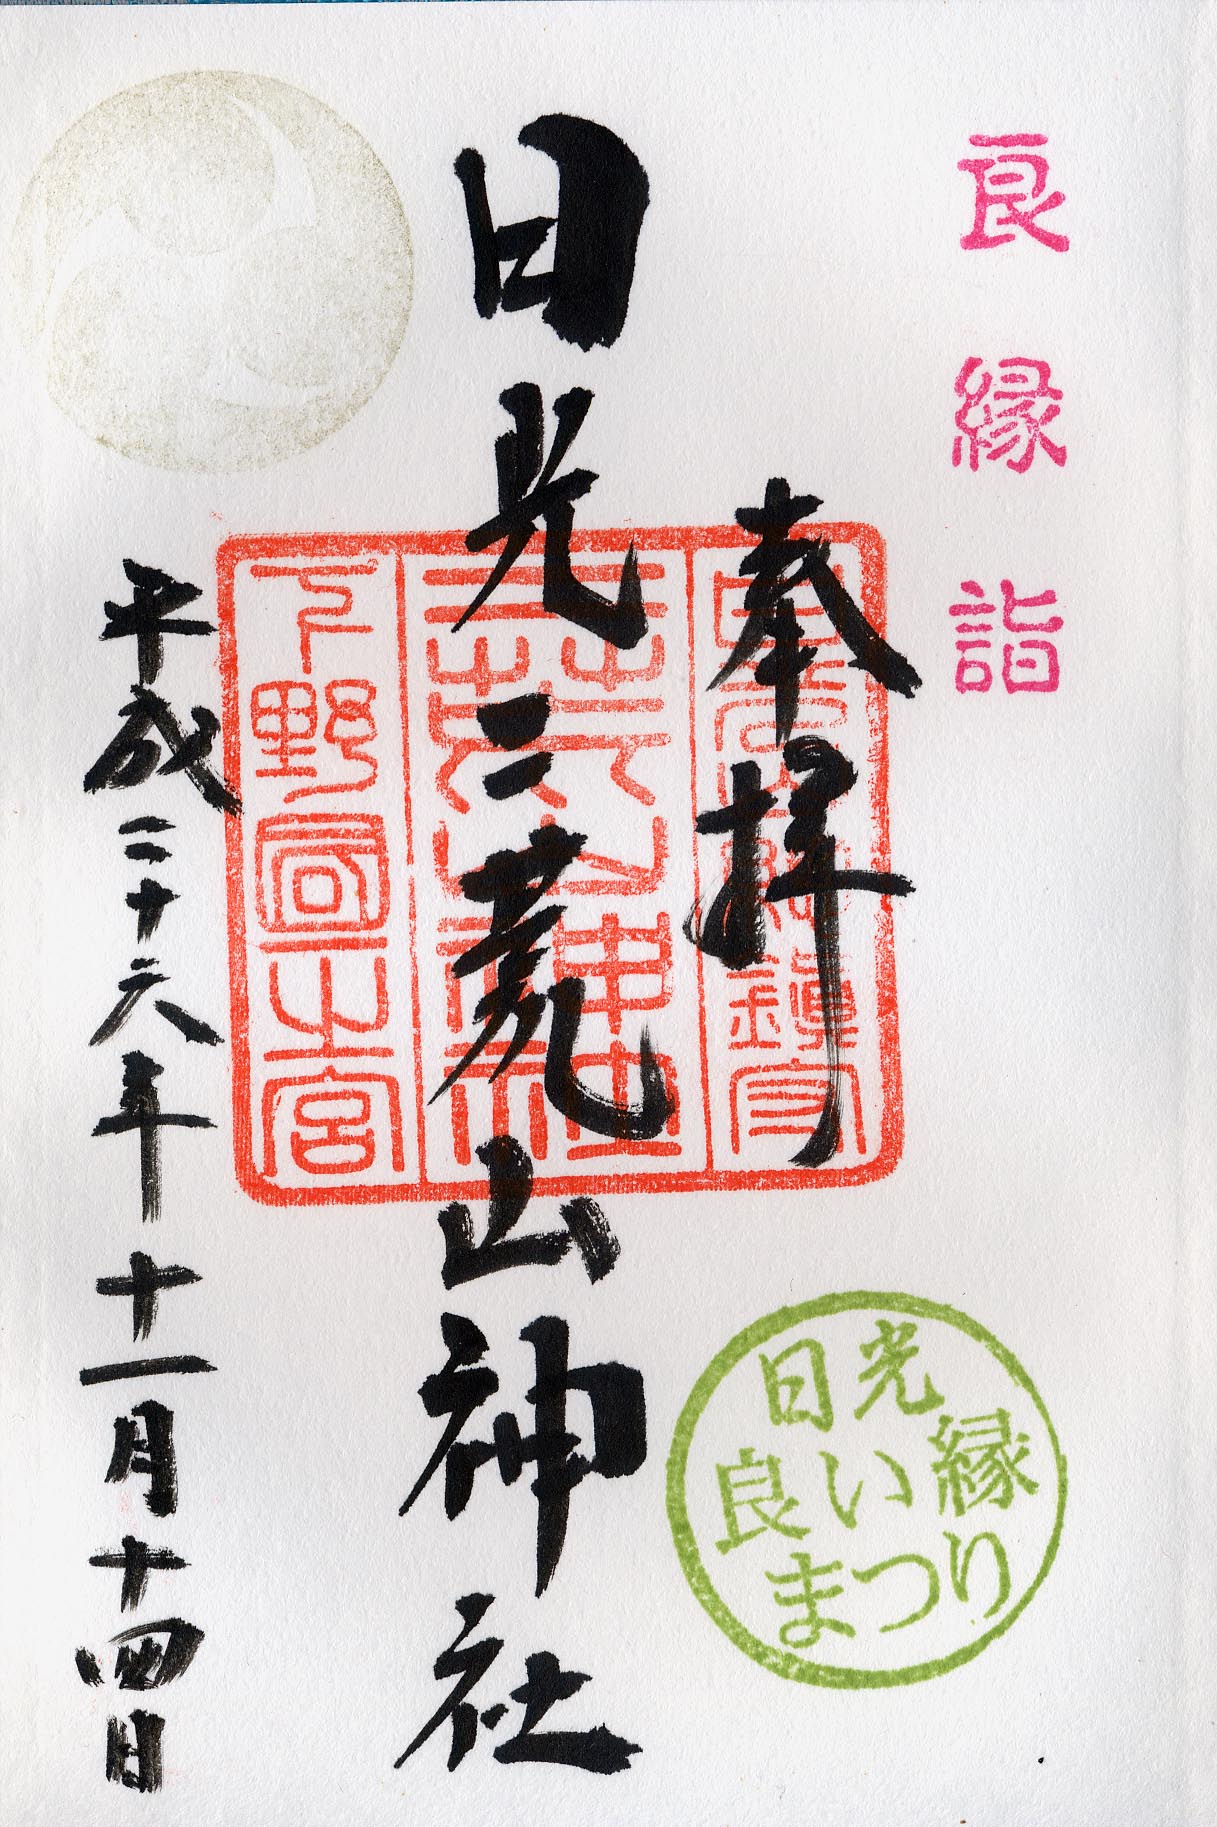 良縁詣
奉拝
日光二荒山神社
二荒山神社
下野国一之宮
平成二十六年十一月十四日
日光
良い縁
まつり